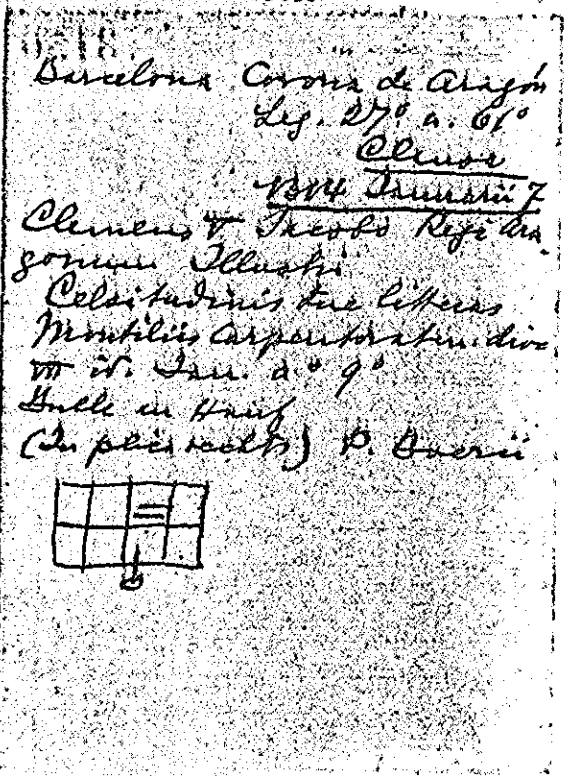 Barcelona Corona de Aragón
Leg. 27º n. 61º
Clausa
1314 Januarii 7
Clemens V Jacobo Regi Ara-
gonum Illustri
Celsitudinis tue litteras
Montiliis Carpentoraten. dioc
VII id. Jan. aº 9º
Bulle in Hanf
(In plica rechts) P.